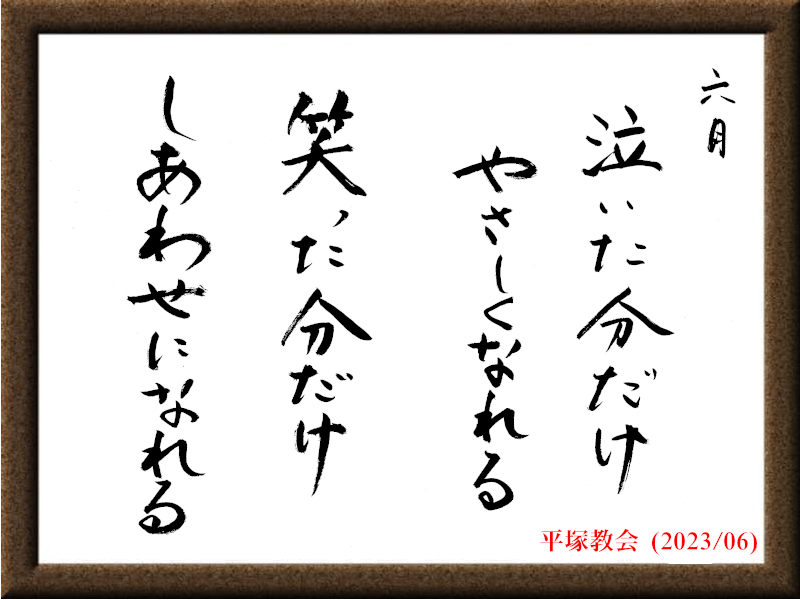 六月
泣いた分だけ
やさしくなれる
笑った分だけ
しあわせになれる
平塚教会 (2023/06)